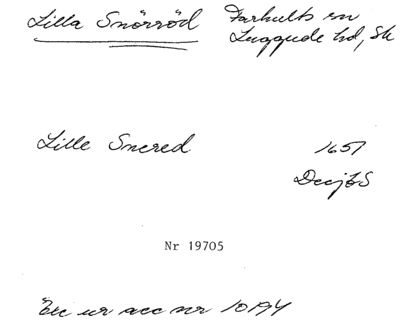 Lilla Snörröd Farhults sn
Luggude hd, Sk
Lille Snered 1651
DecjbS
Nr 19705
Exc ur acc nr 10194